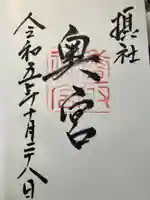 摂社
奥宮
令和五年十月二十八日